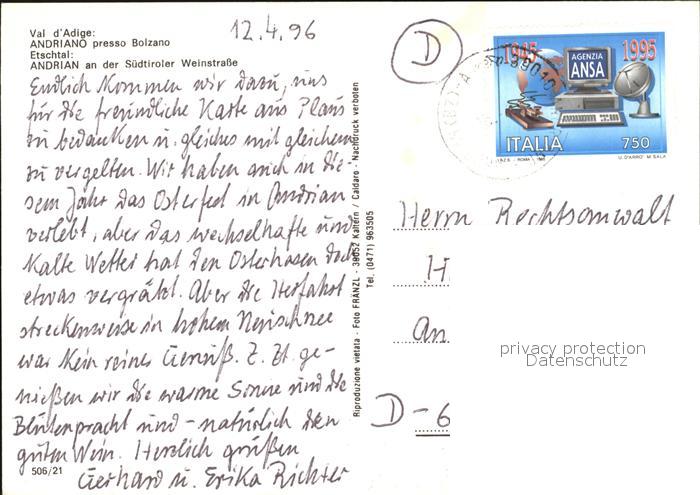 Val d'Adige:
ANDRIANO presso Bolzano
Etschtal:
ANDRIAN an der Südtiroler Weinstraße
12.4.96
Endlich kommen wir dazu, uns
für die freundliche Karte aus Plaus
zu bedanken u. gleiches mit gleichem
zu vergelten. Wir haben auch in die-
sem Jahr das Osterfest in Andrian
verlebt, aber das wechselhafte und
kalte Wetter hat den Osterhasen doch
etwas vergrätzt. Aber die Herfahrt
streckenweise in hohem Neuschnee
war kein reines Genuß. Z. Zt. ge-
nießen wir die warme Sonne und die
Blütenpracht und - natürlich den
guten Wein. Herzlich grüßen
Gerhard u. Erika Richter
506/21
Riproduzione vietata - Foto FRÄNZL - 39052 Kaltern / Caldaro - Nachdruck verboten
Tel. (0471) 963505
D
1945 1995
AGENZIA
ANSA
ITALIA 750
I.P.Z.S. - ROMA - 1995 U. D'ARRO' M. SALA
Herrn Rechtsanwalt
H
An
D-6
privacy protection
Datenschutz